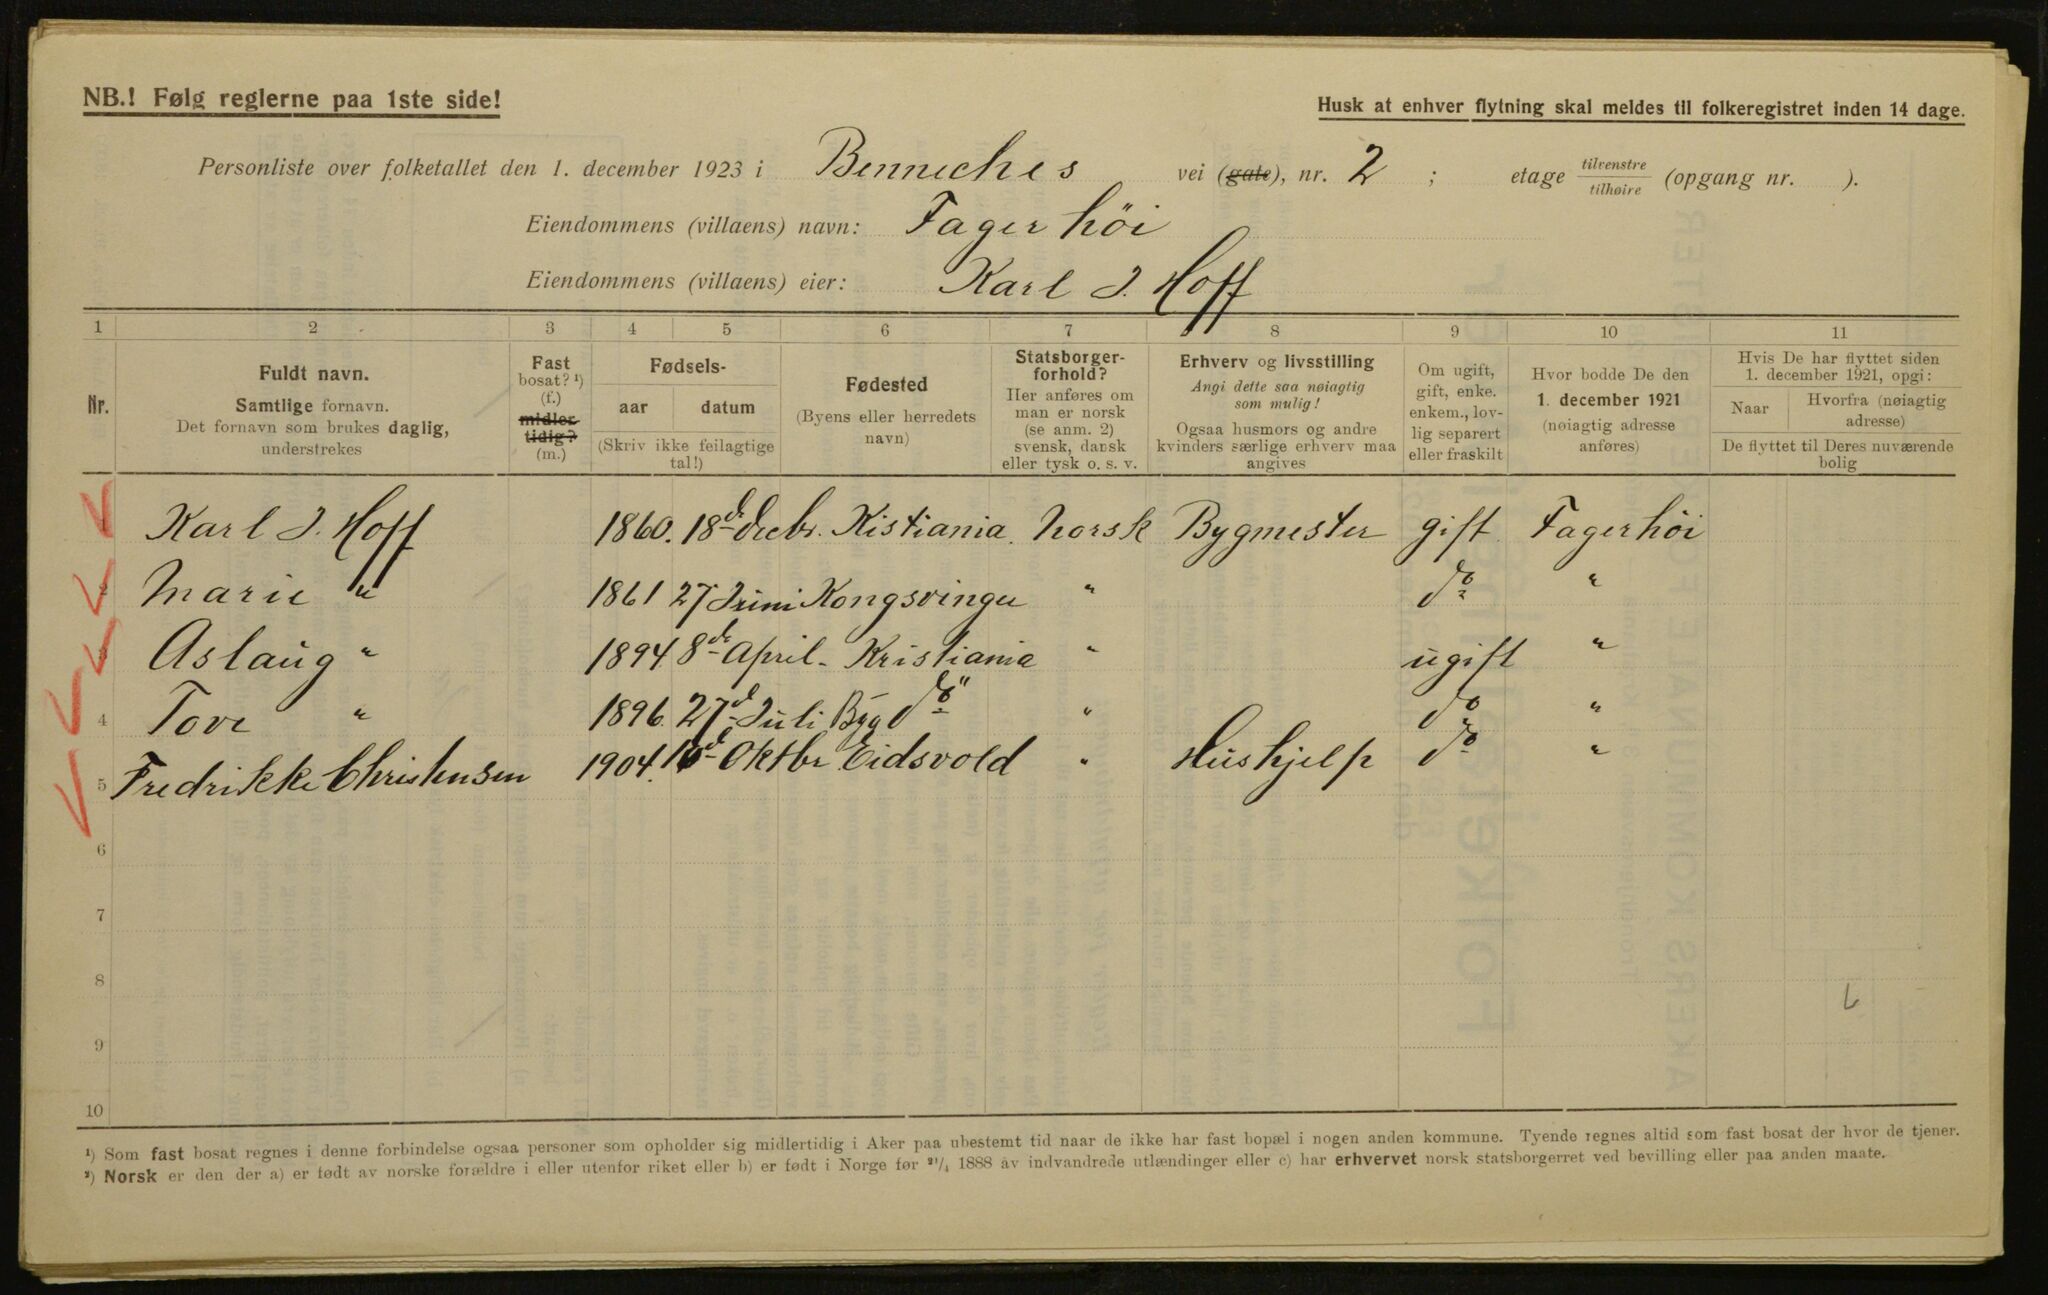 NB.! Følg reglerne paa 1ste side!
Husk at enhver flytning skal meldes til folkeregistret inden 14 dage.
Personliste over folketallet den 1. december 1923 i Benneches vei (gate), nr. 2 ; etage tilvenstre / tilhøire (opgang nr. ).
Eiendommens (villaens) navn: Fagerhöi
Eiendommens (villaens) eier: Karl J. Hoff
1 2 3 4 5 6 7 8 9 10 11
Nr.
Fuldt navn.
Samtlige fornavn.
Det fornavn som brukes daglig,
understrekes
Fast
bosat? ¹)
(f.)
midler-
tidig?
(m.)
Fødsels-
aar datum
(Skriv ikke feilagtige
tal!)
Fødested
(Byens eller herredets
navn)
Statsborger-
forhold?
Her anføres om
man er norsk
(se anm. 2)
svensk, dansk
eller tysk o. s. v.
Erhverv og livsstilling
Angi dette saa nøiagtig
som mulig!
Ogsaa husmors og andre
kvinders særlige erhverv maa
angives
Om ugift,
gift, enke.
enkem., lov-
lig separert
eller fraskilt
Hvor bodde De den
1. december 1921
(nøiagtig adresse
anføres)
Hvis De har flyttet siden
1. december 1921, opgi:
Naar
Hvorfra (nøiagtig
adresse)
De flyttet til Deres nuværende
bolig
1 Karl J. Hoff 1860. 18de Decbr. Kistiania. Norsk Bygmester gift Fagerhöi
2 Marie " 1861 27 Juni Kongsvinger " do "
3 Aslaug " 1894. 8de April - Kristiania " ugift "
4 Tove " 1896. 27d Juli Byg do" " do "
5 Fredrikke Christensen 1904. Oktbr Eidsvold " Hushjelp do "
6
7
8
9
10
¹) Som fast bosat regnes i denne forbindelse ogsaa personer som opholder sig midlertidig i Aker paa ubestemt tid naar de ikke har fast bopæl i nogen anden kommune. Tyende regnes altid som fast bosat der hvor de tjener.
²) Norsk er den der a) er født av norske forældre i eller utenfor riket eller b) er født i Norge før ²¹/₄ 1888 av indvandrede utlændinger eller c) har erhvervet norsk statsborgerret ved bevilling eller paa anden maate.